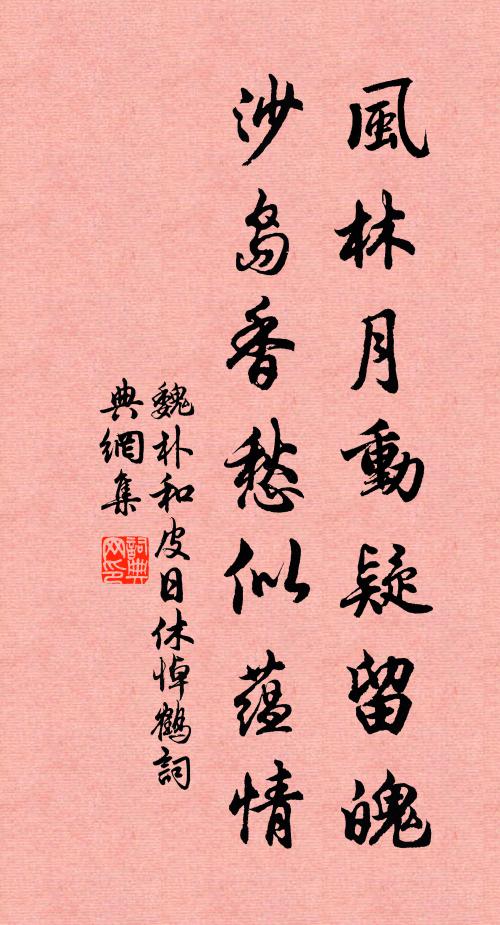 風林月動疑留魄
沙島香愁似蘊情
魏朴和皮日休悼鶴詞
典網集
詞典网印